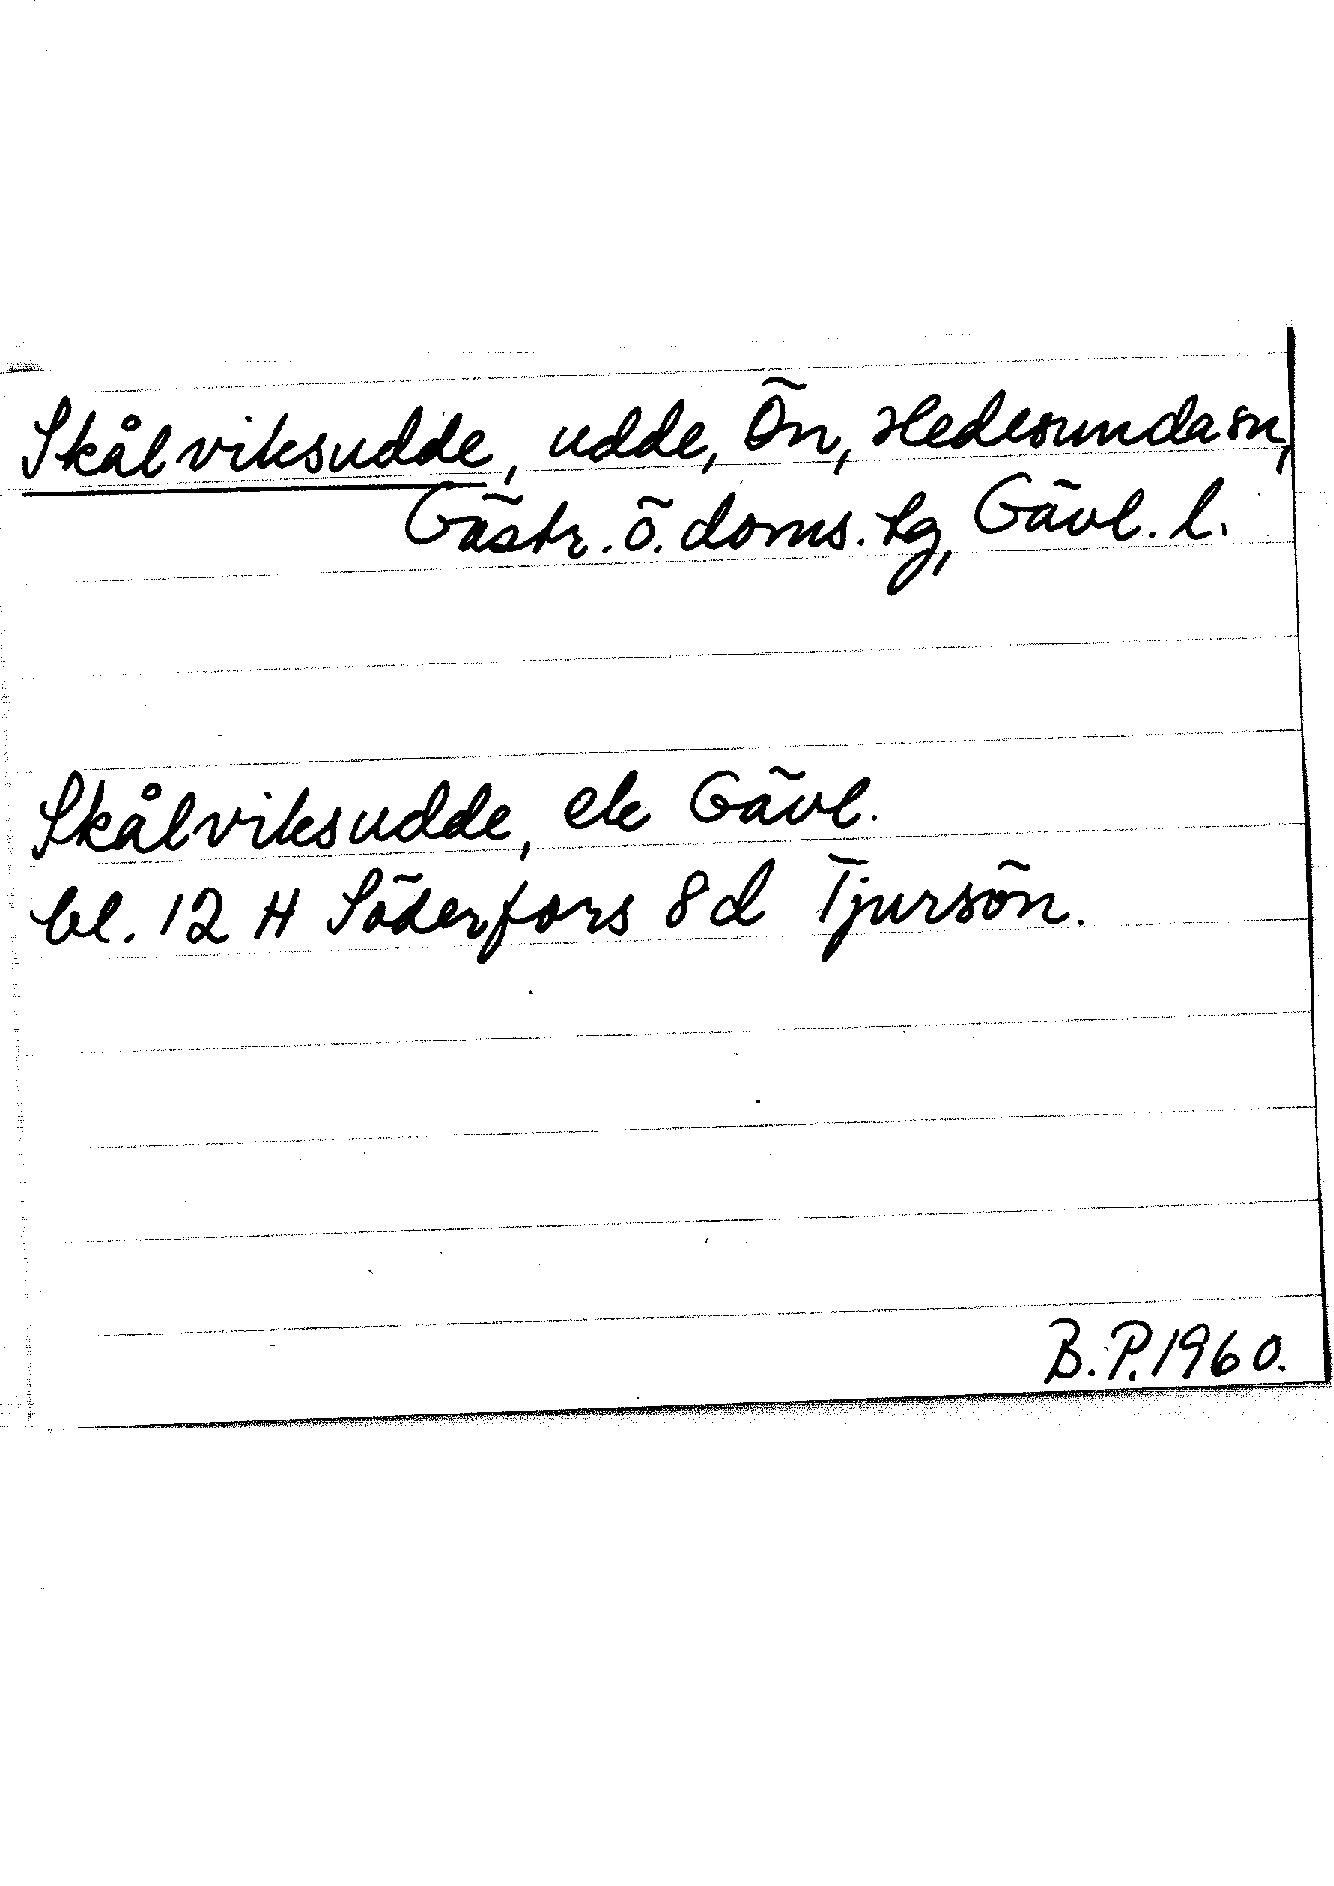 Skålviksudde, udde, Ön, Hedesunda sn,
Gästr. ö. doms. tg, Gävl. l.
Skålviksudde, ek Gävl.
bl. 12 H Söderfors 8d Tjursön.
B.P. 1960.